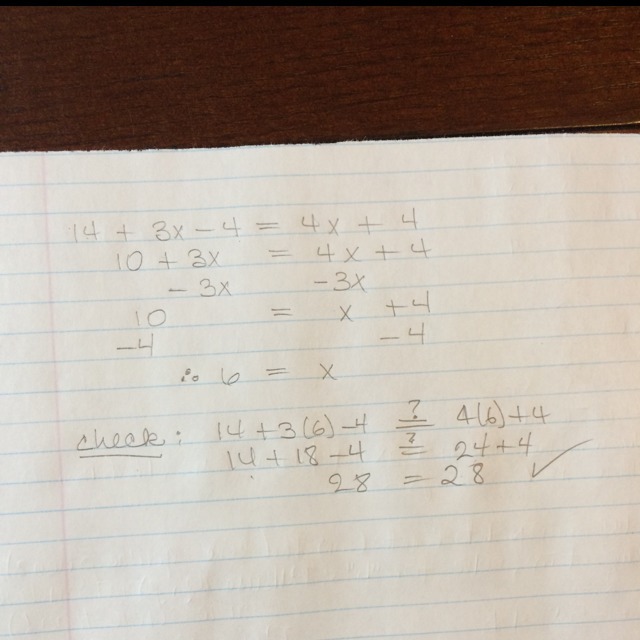 14 + 3x - 4 = 4x + 4
10 + 3x = 4x + 4
- 3x -3x
10 = x + 4
-4 -4
∴ 6 = x
check: 14 + 3(6) - 4 ≟ 4(6) + 4
14 + 18 - 4 ≟ 24 + 4
28 = 28 ✓